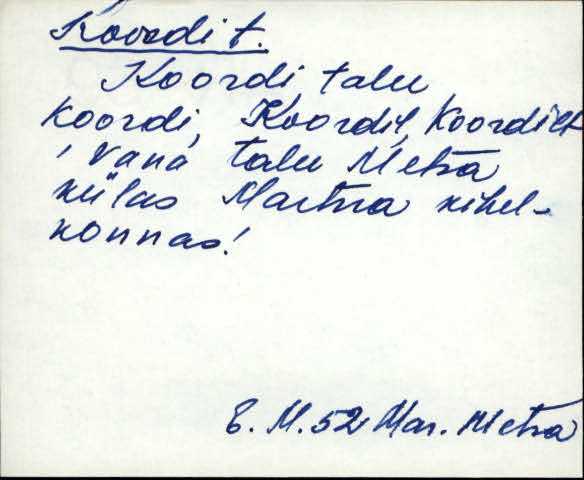 Koordi t.
Koordi, talu
Koordi, Koordil, Koordilt
! vana talu Metsa
külas Martna kihel-
konnas!
E. M. 52 Mar. Metsa